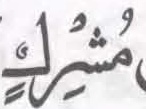 مُشْرِكٍ